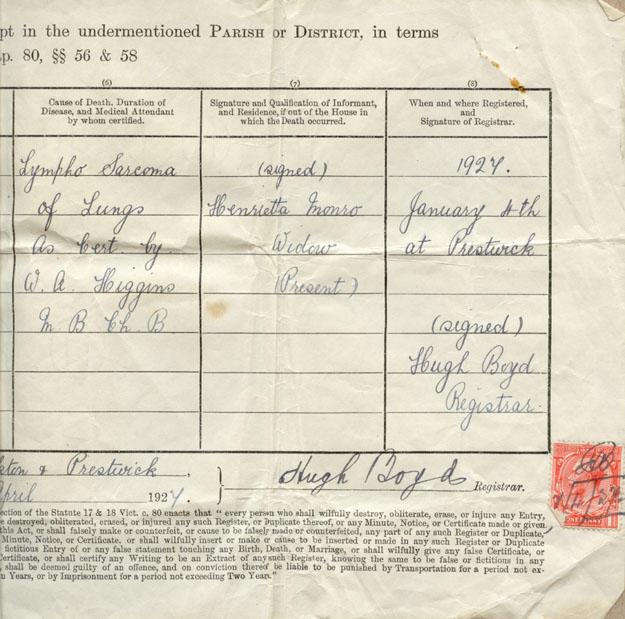 pt in the undermentioned PARISH or DISTRICT, in terms
p. 80, §§ 56 & 58
(6) (7) (8)
Cause of Death, Duration of
Disease, and Medical Attendant
by whom certified.
Signature and Qualification of Informant,
and Residence, if out of the House in
which the Death occurred.
When and where Registered,
and
Signature of Registrar.
Lympho Sarcoma
of Lungs
As Cert by
W. A. Higgins
M B Ch B
(signed)
Henrietta Monro
Widow
(Present)
1927.
January 4th
at Prestwick
(signed)
Hugh Boyd
Registrar.
kton & Prestwick,
April 1927.
Hugh Boyd Registrar.
ection of the Statute 17 & 18 Vict. c. 80 enacts that "every person who shall wilfully destroy, obliterate, erase, or injure any Entry,
e destroyed, obliterated, erased, or injured any such Register, or Duplicate thereof, or any Minute, Notice, or Certificate made or given
this Act, or shall falsely make or counterfeit, or cause to be falsely made or counterfeited, any part of any such Register or Duplicate,
Minute, Notice, or Certificate, or shall wilfully insert or make or cause to be inserted or made in any such Register or Duplicate
fictitious Entry of or any false statement touching any Birth, Death, or Marriage, or shall wilfully give any false Certificate, or
Certificate, or shall certify any Writing to be an Extract of any such Register, knowing the same to be false or fictitious in any
, shall be deemed guilty of an offence, and on conviction thereof be liable to be punished by Transportation for a period not ex-
n Years, or by Imprisonment for a period not exceeding Two Years."
ONE PENNY